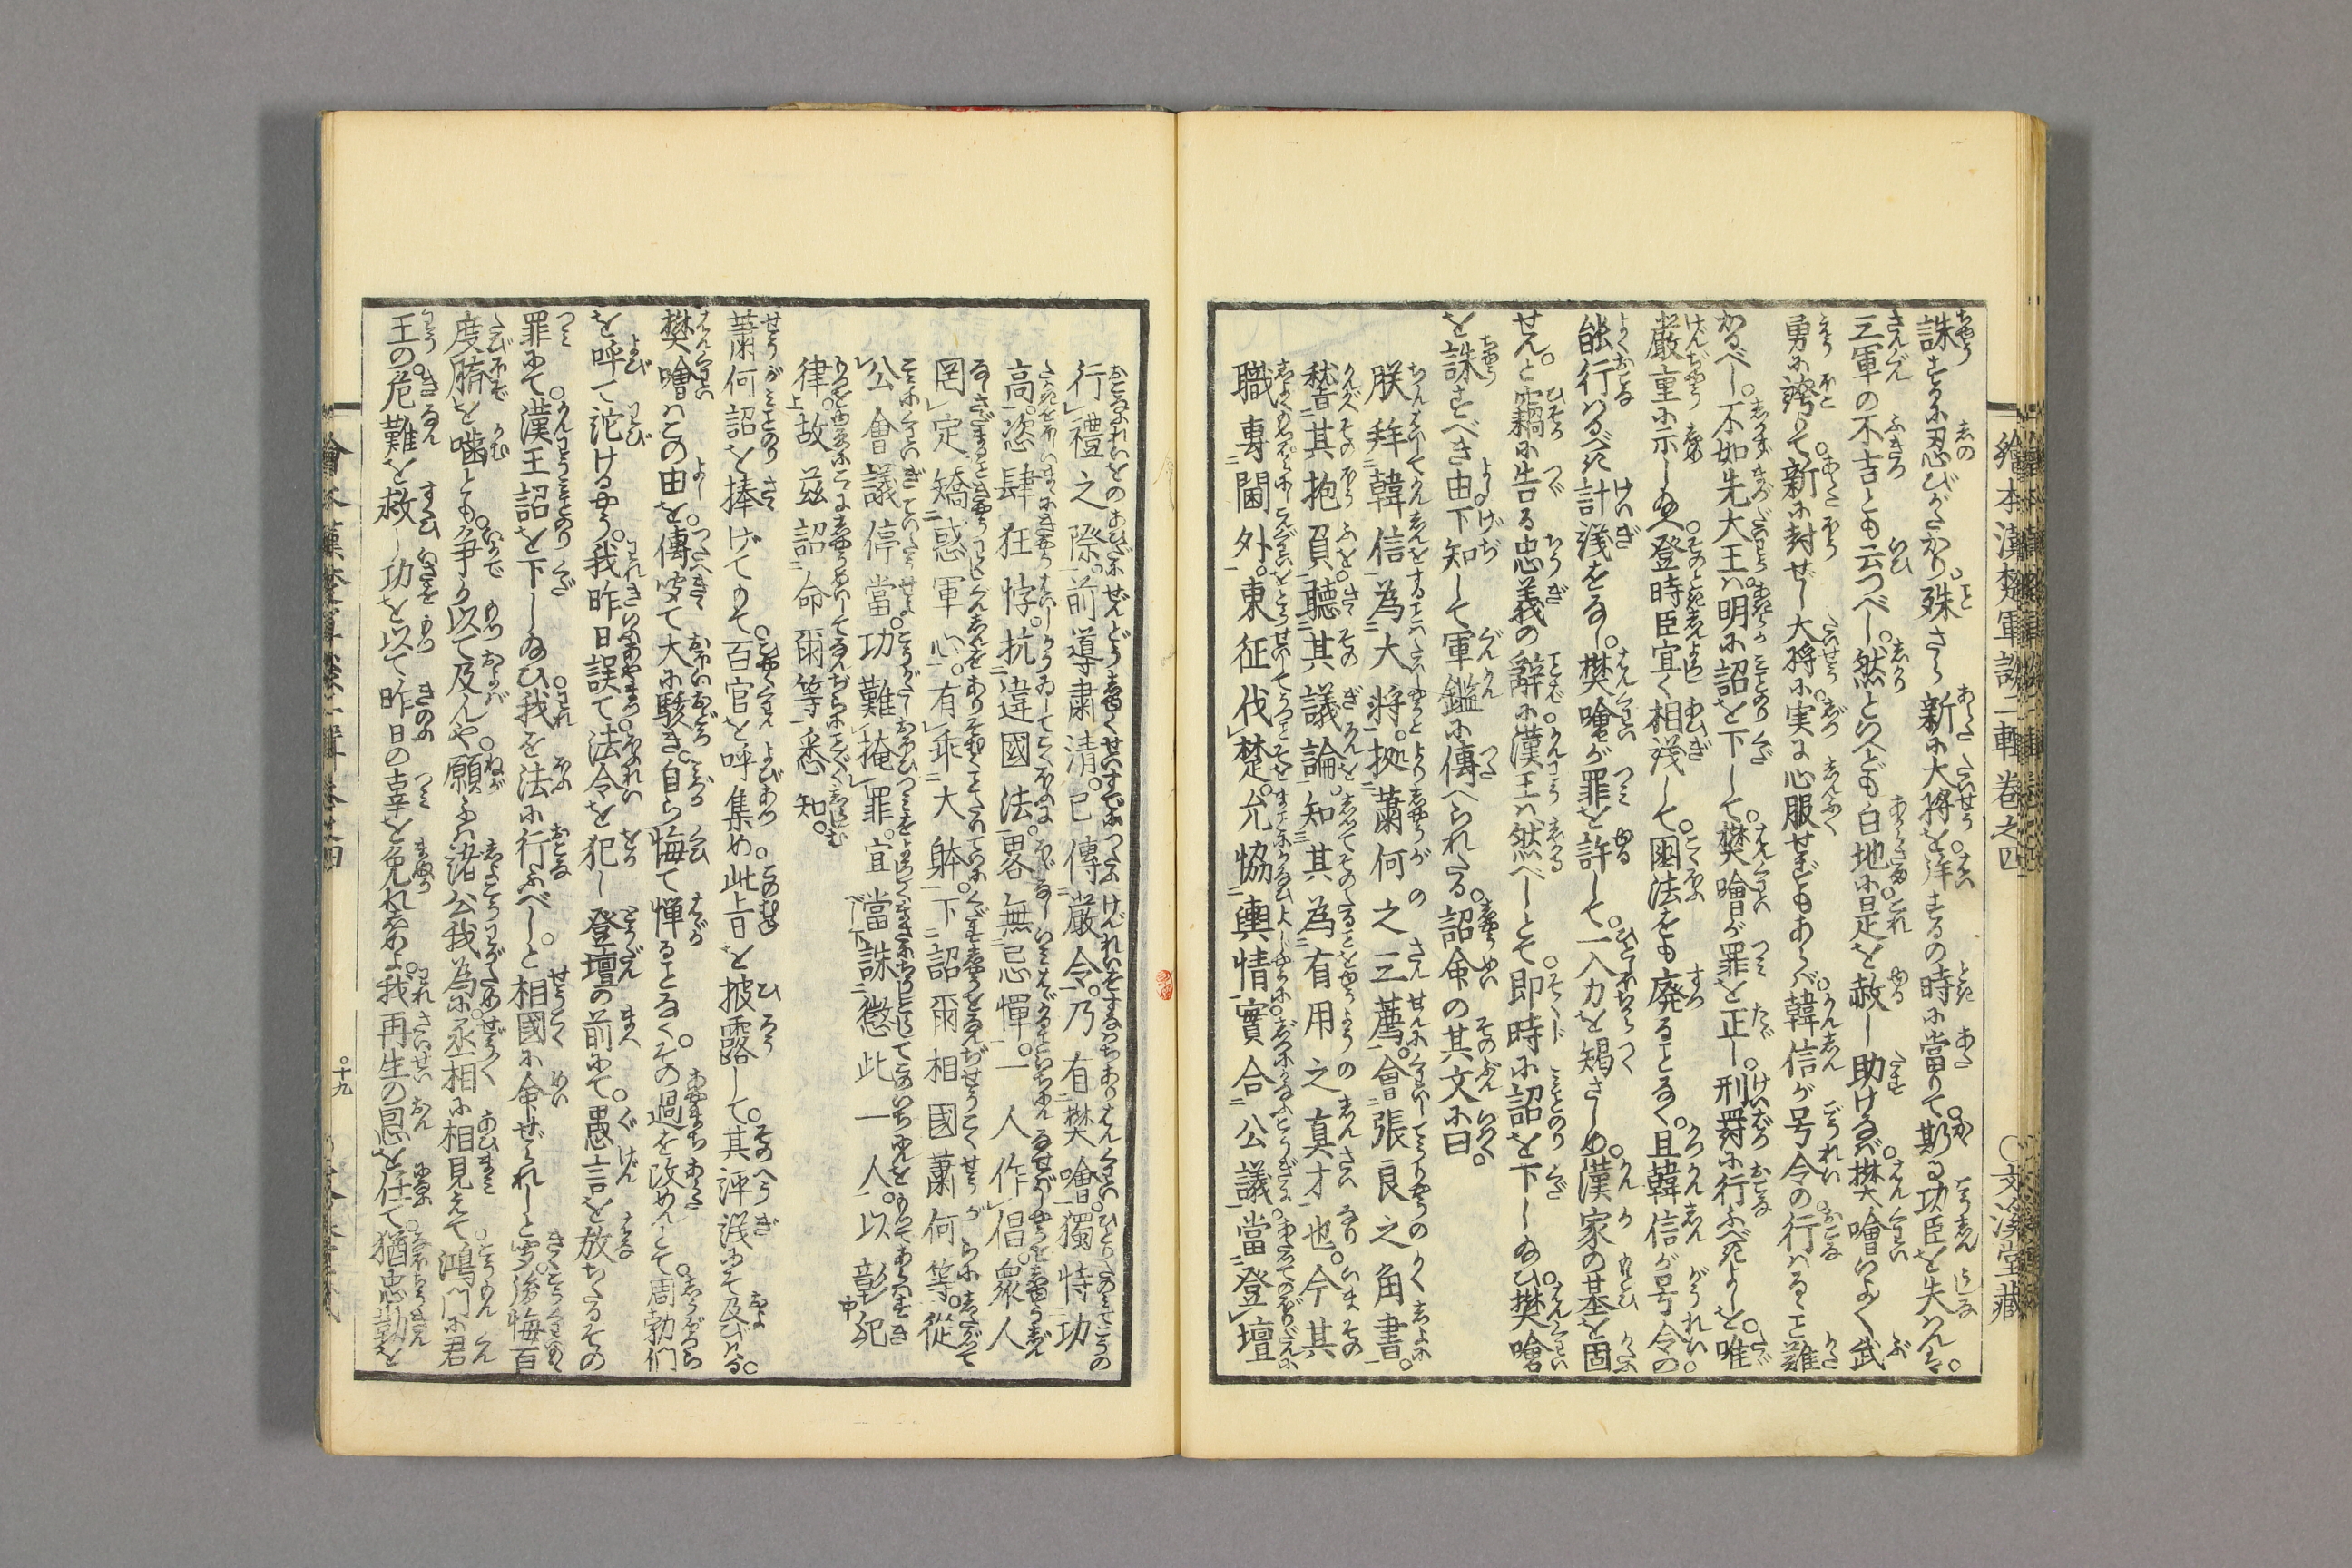 誅するに忍びがたかり。殊さら新に大将を拝するの時に當りて。斯る功臣を失はんは。
三軍の不吉とも云つべし。然といへども白地に是を赦し助けなば。樊噲いよ〳〵武
勇に誇りて。新に封ぜし大将に。実に心服せずもあらば。韓信が号令の行はるゝこと難
かるべし。不如先大王は。明に詔を下して。樊噲が罪を正し。刑罰に行ふべきよしを。唯
嚴重に示し給へ。登時臣宜く相議して。國法をも廃ることなく。且韓信が号令の。
能行はるべき計議をなし。樊噲が罪を許して。一入力を竭さしめ。漢家の基を固
せん。と竊に告る忠義の辞に。漢王は然べしとて。即時に詔を下し給ひ。樊噲
を誅すべき由。下知して軍鑑に傳へられたる。詔命の其文に曰。
朕拜韓信為大将。拠蕭何之三薦。會張良之角書。
嵇其抱負。聽其議論。知其為有用之真才也。今其
職専閫外。東征伐楚。允恊輿情。實合公議。當登壇
繪本漢楚軍談二輯卷之四
○文溪堂藏
行禮之際。前導肅清。已傳嚴令。乃有樊噲。獨恃功
高。恣肆狂悖。抗違國法。畧無忌憚。一人作倡。衆人
罔定。矯惑軍心。有乖大躰。下詔爾相國蕭何等。從
公會議停當。功難掩罪。宜當誅懲此一人。以彰犯
律。故茲詔命爾等。悉知。
蕭何詔を捧げてもて。百官を呼集め。此旨を披露して。其評議にぞ及びける。
樊噲はこの由を。傳聞て大に駭き。自ら悔て憚ることなく。その過を改めんとて。周勃們
を呼て詑けるやう。我昨日誤て。法令を犯し登壇の前にて。愚言を放ちたるその
罪にて。漢王詔を下し給ひ。我を法に行ふべし。と相國に命ぜられしと聞。後悔百
度臍を噛とも。争か以て及んや。願ふは諸公我為に。丞相に相見えて。鴻門に君
王の。危難を救し功を以て。昨日の辜を免れしめよ。我再生の恩を仕て。猶忠勤を
○十九